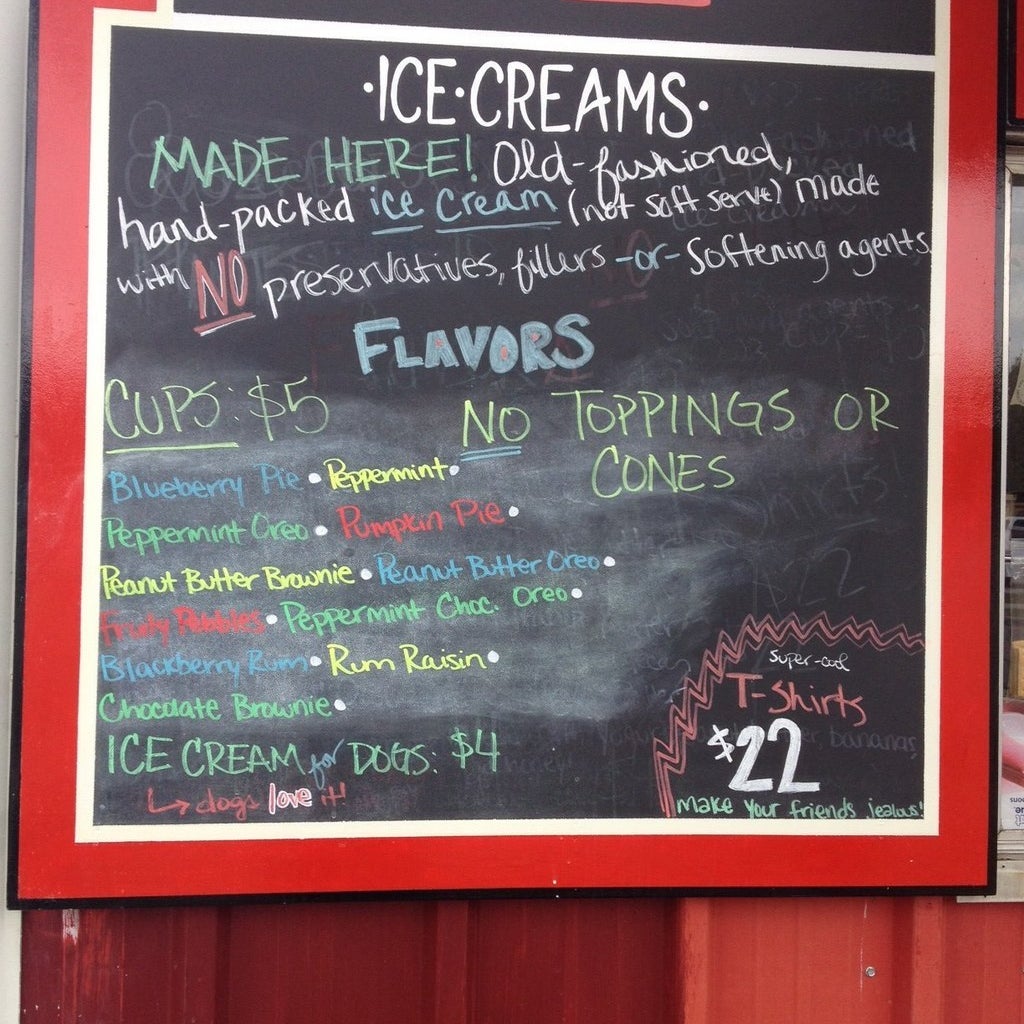 ·ICE·CREAMS·
MADE HERE! Old-fashioned,
hand-packed ice cream (not soft serve) made
with NO preservatives, fillers -or- softening agents
FLAVORS
CUPS: $5
NO TOPPINGS OR
CONES
Blueberry Pie • Peppermint •
Peppermint Oreo • Pumpkin Pie •
Peanut Butter Brownie • Peanut Butter Oreo •
Fruity Pebbles • Peppermint Choc. Oreo •
Blackberry Rum • Rum Raisin •
Chocolate Brownie •
ICE CREAM for DOGS: $4
↳ dogs love it!
super-cool
T-Shirts
$22
make your friends jealous!